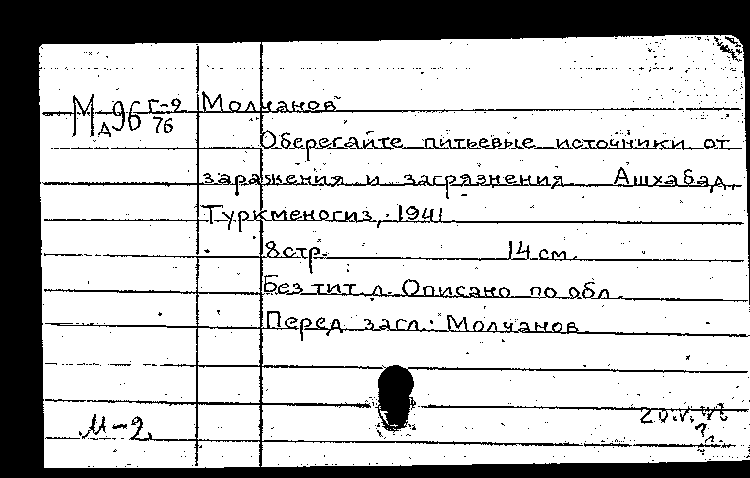 Мд96 Г-2/76 Молчанов
Оберегайте питьевые источники от
заражения и загрязнения Ашхабад,
Туркменогиз, 1941
8 стр. 14 см.
Без тит. л. Описано по обл.
Перед загл.: Молчанов
М-2. 20.V.